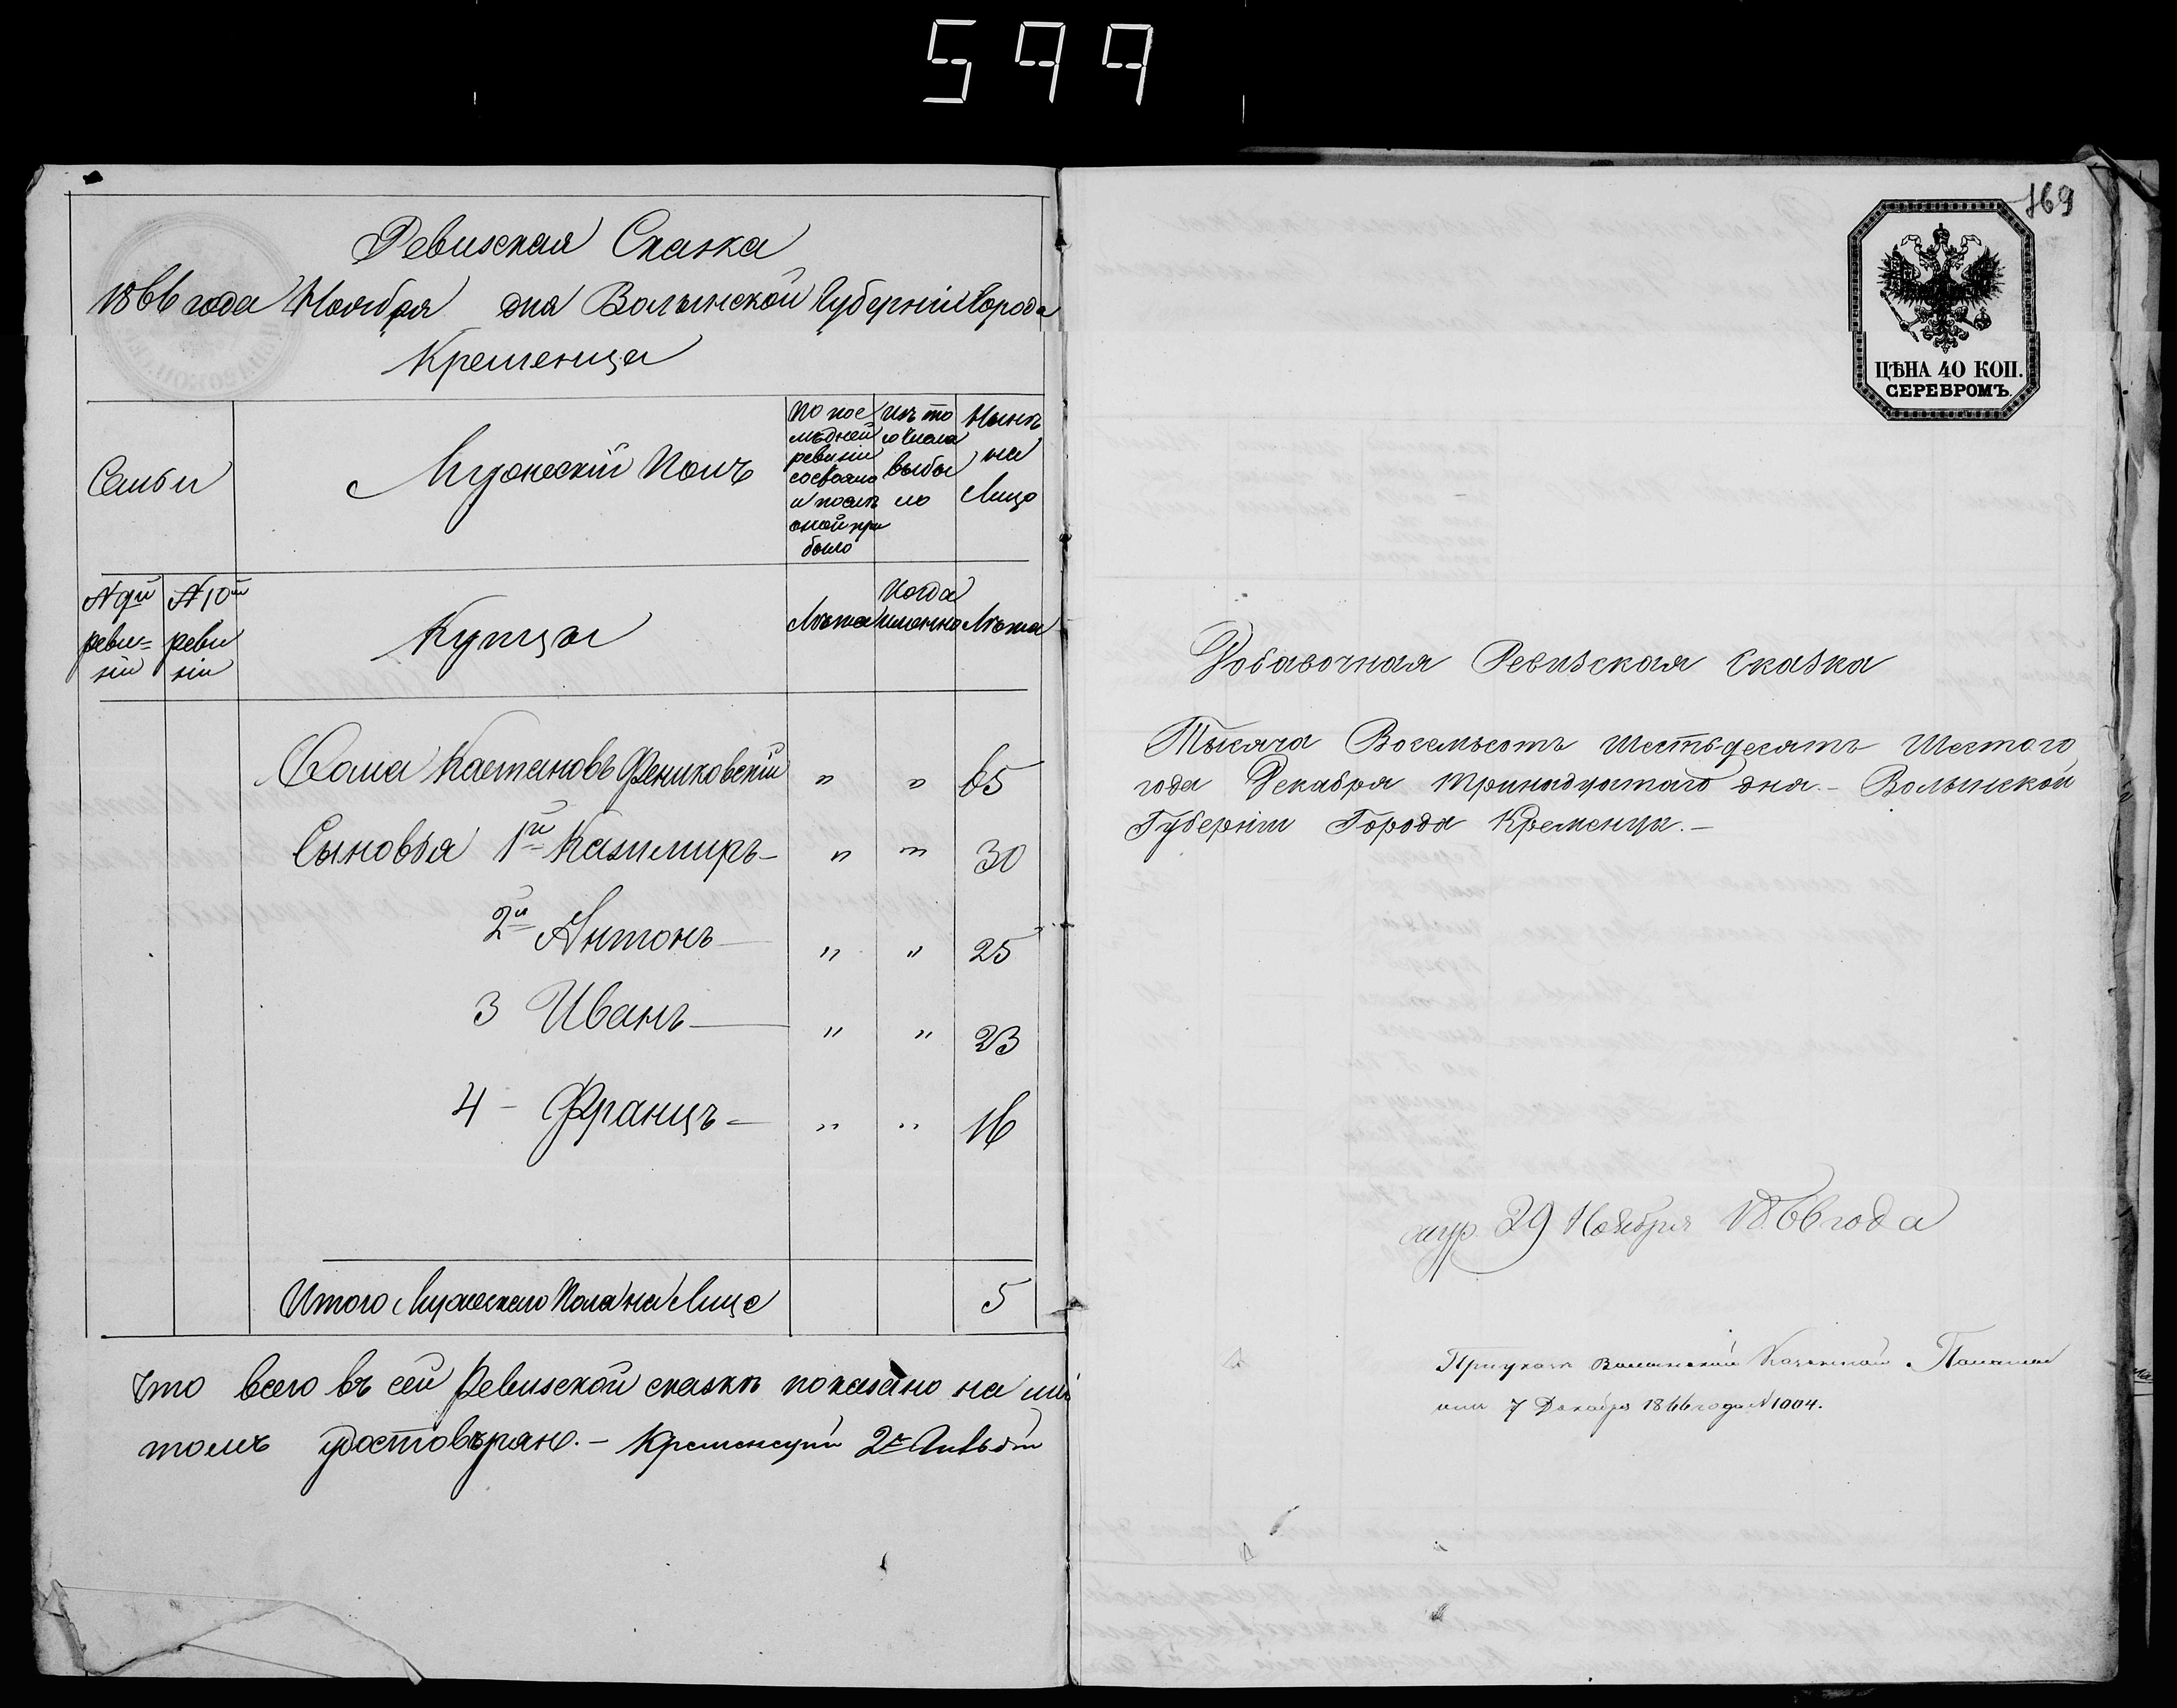 599
Ревизская Сказка
1866 года Ноября дня Волынской Губерніи Города
Кременца
Семьи
Мужескій Полъ
По пос
лѣдней
ревизіи
состояло
и послѣ
оной при
было
Изъ то
го числа
выбы
ло
Нынѣ
на
Лицо
№ 9й
реви=
зіи
№ 10й
реви
зіи
Купцы
Лѣта
Когда
именно
Лѣта
Кастановъ Фениковскій " " 65
Сыновья 1й Казимиръ — " " 30
2й Антонъ — " " 25
3 Иванъ — " " 23
4 – Францъ — " " 16
Итого Мужескаго Пола на Лице 5
Что всего въ сей Ревизской сказкѣ показано на
томъ удостовѣряю. – Кременецкій 2й
169
ЦѢНА 40 КОП.
СЕРЕБРОМЪ.
Добавочная Ревизская Сказка
Тысяча Восемьсотъ Шестьдесятъ Шестого
года Декабря тринадцатаго дня. – Волынской
Губерніи Города Кременца. –
29 Ноября 1866 года
Волынской Казенной Палаты
7 Декабря 1866 года № 1004.